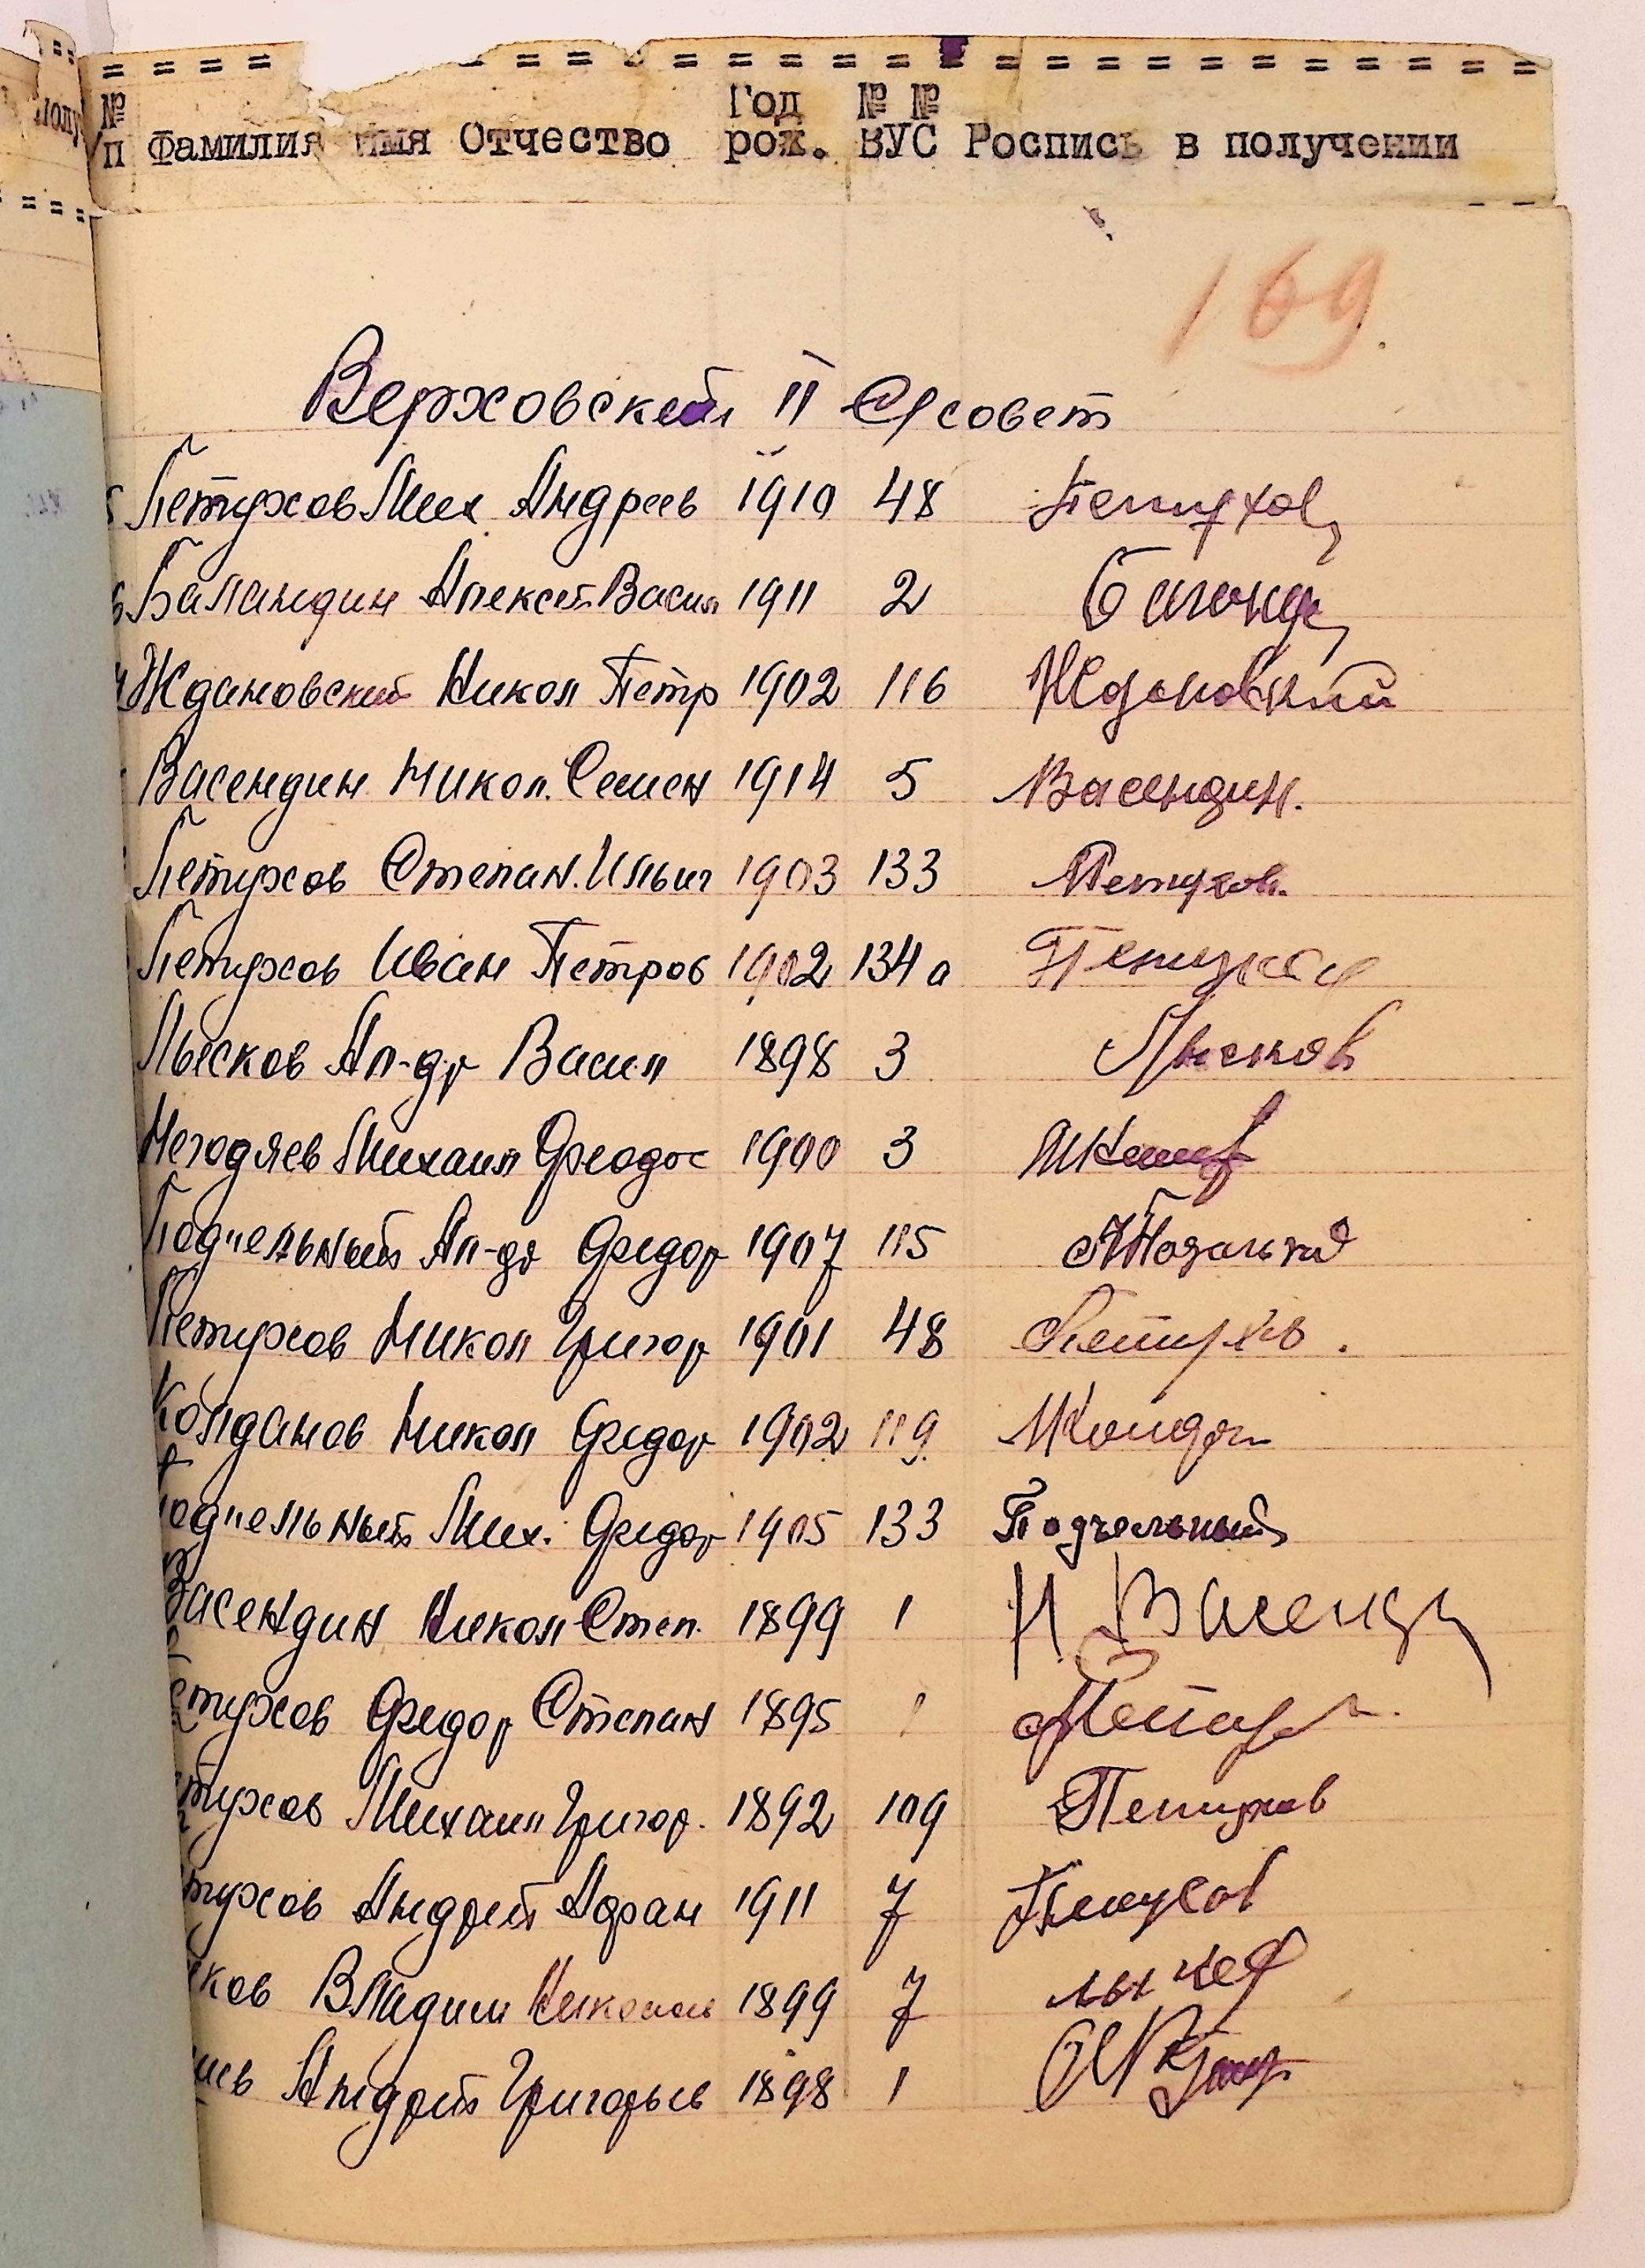 Год №№
№ п Фамилия имя Отчество рож. ВУС Роспись в получении
169
Верховский II С/совет
Петухов Мих Андреев 1910 48 Петухов
Баландин Алексей Васил 1911 2
Ждановский Никол Петр 1902 116 Ждановский
Васендин Никол. Семен 1914 5 Васендин.
Петухов Степан. Ильич 1903 133 Петухов.
Петухов Иван Петров 1902 134а Петухов
Лысков Ал-др Васил 1898 3 Лысков
Негодяев Михаил Феодос 1900 3
Подчельный Ал-др Федор 1907 115
Петухов Никол Григор 1901 48 Петухов.
Колданов Никол Федор 1902 119
одчельный Мих. Федор 1905 133 Подчельный
Васендин Никол Степ. 1899 1 Н Васенд
етухов Федор Степан 1895 1
тухов Михаил Григор. 1892 109 Петухов
тухов Андрей Афан 1911 7 Петухов
ков Владим Николаев 1899 7
Андрей Григорьев 1898 1